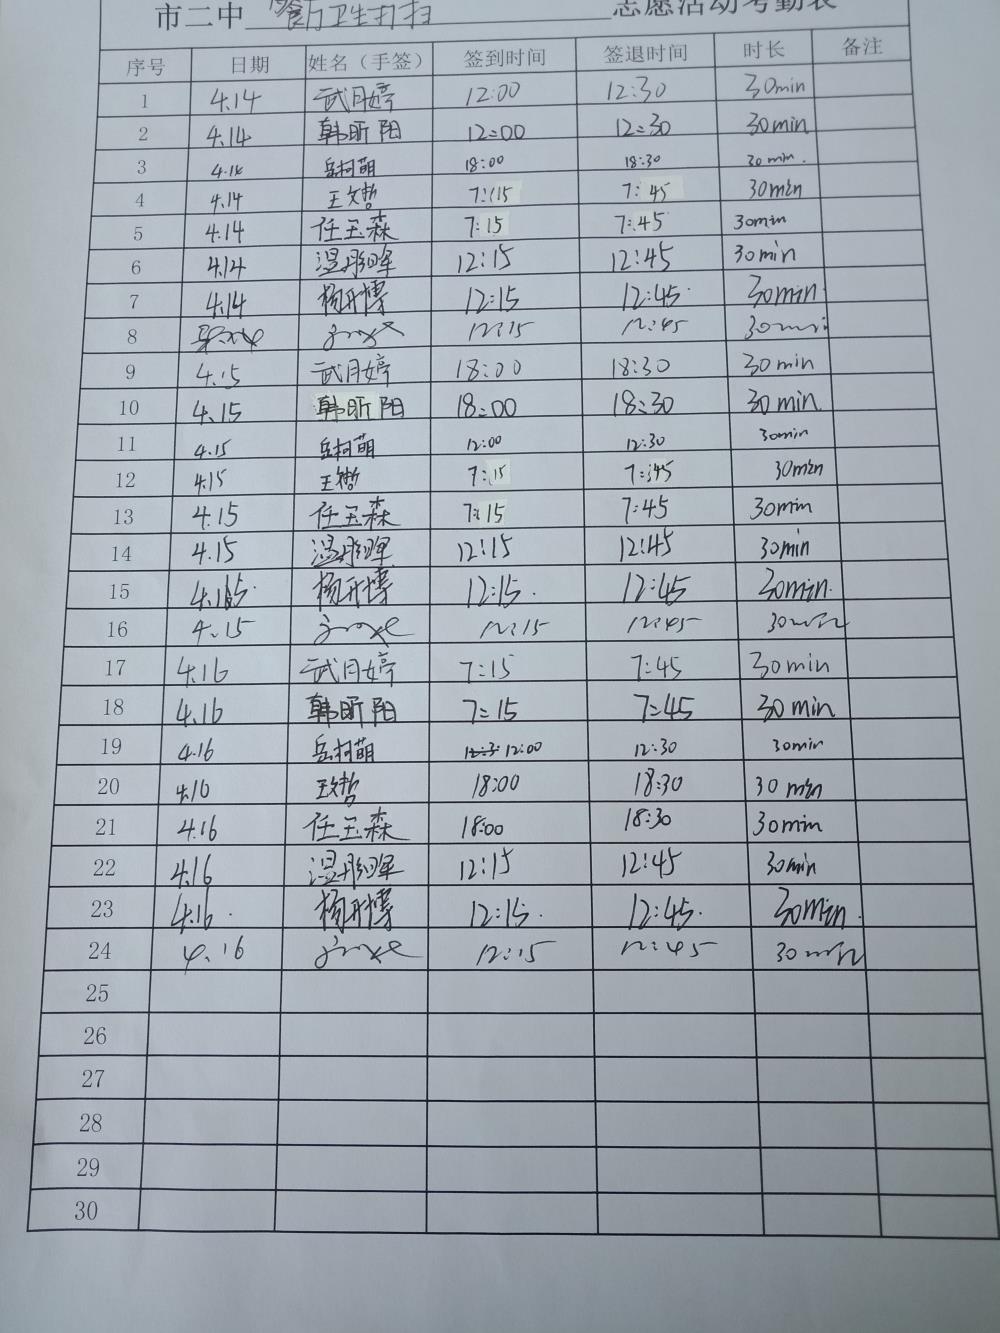 市二中 卫生打扫 志愿活动考勤表
序号 日期 姓名（手签） 签到时间 签退时间 时长 备注
1 4.14 武月婷 12:00 12:30 30min
2 4.14 韩昕阳 12:00 12:30 30min
3 4.14 岳柯萌 18:00 18:30 30min.
4 4.14 王文哲 7:15 7:45 30min
5 4.14 任玉森 7:15 7:45 30min
6 4.14 温彤晖 12:15 12:45 30min
7 4.14 杨开博 12:15 12:45 30min
8 12:15 12:45 30min
9 4.15 武月婷 18:00 18:30 30min
10 4.15 韩昕阳 18:00 18:30 30min
11 4.15 岳柯萌 12:00 12:30 30min
12 4.15 王文哲 7:15 7:45 30min
13 4.15 任玉森 7:15 7:45 30min
14 4.15 温彤晖 12:15 12:45 30min
15 4.15 杨开博 12:15. 12:45 30min.
16 4.15 12:15 12:45 30min
17 4.16 武月婷 7:15 7:45 30min
18 4.16 韩昕阳 7:15 7:45 30min
19 4.16 岳柯萌 12:00 12:30 30min
20 4.16 王文哲 18:00 18:30 30min
21 4.16 任玉森 18:00 18:30 30min
22 4.16 温彤晖 12:15 12:45 30min
23 4.16. 杨开博 12:15. 12:45. 30min.
24 4.16 12:15 12:45 30min
25
26
27
28
29
30